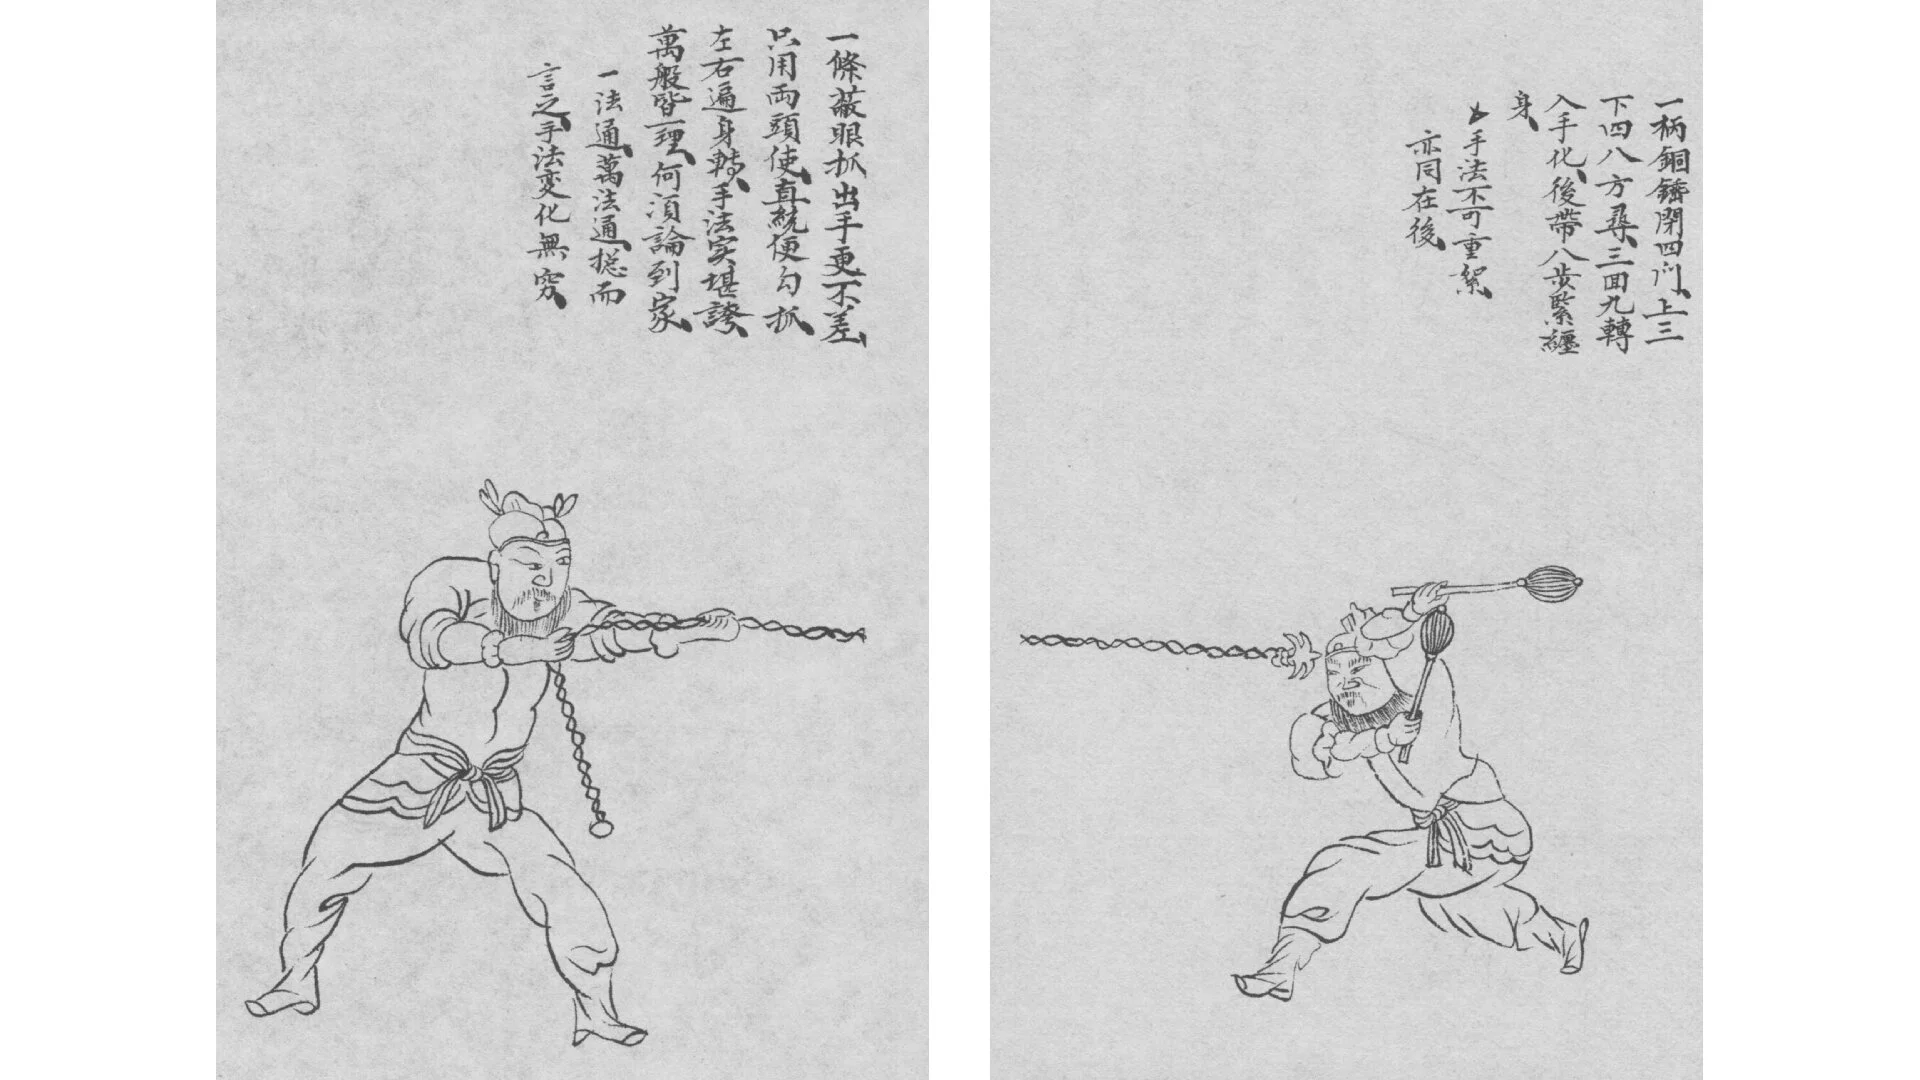 一柄銅錘閉四门上三
下四八方尋三面九轉
入手化後帶八步緊纏
身
手法不可重絮
亦同在後
一條蔽眼抓出手更不差
只用両頭使直統便勾抓
左右遍身轉手法实堪誇
萬般皆一理何須論到家
一法通萬法通摠而
言之手法変化無窮